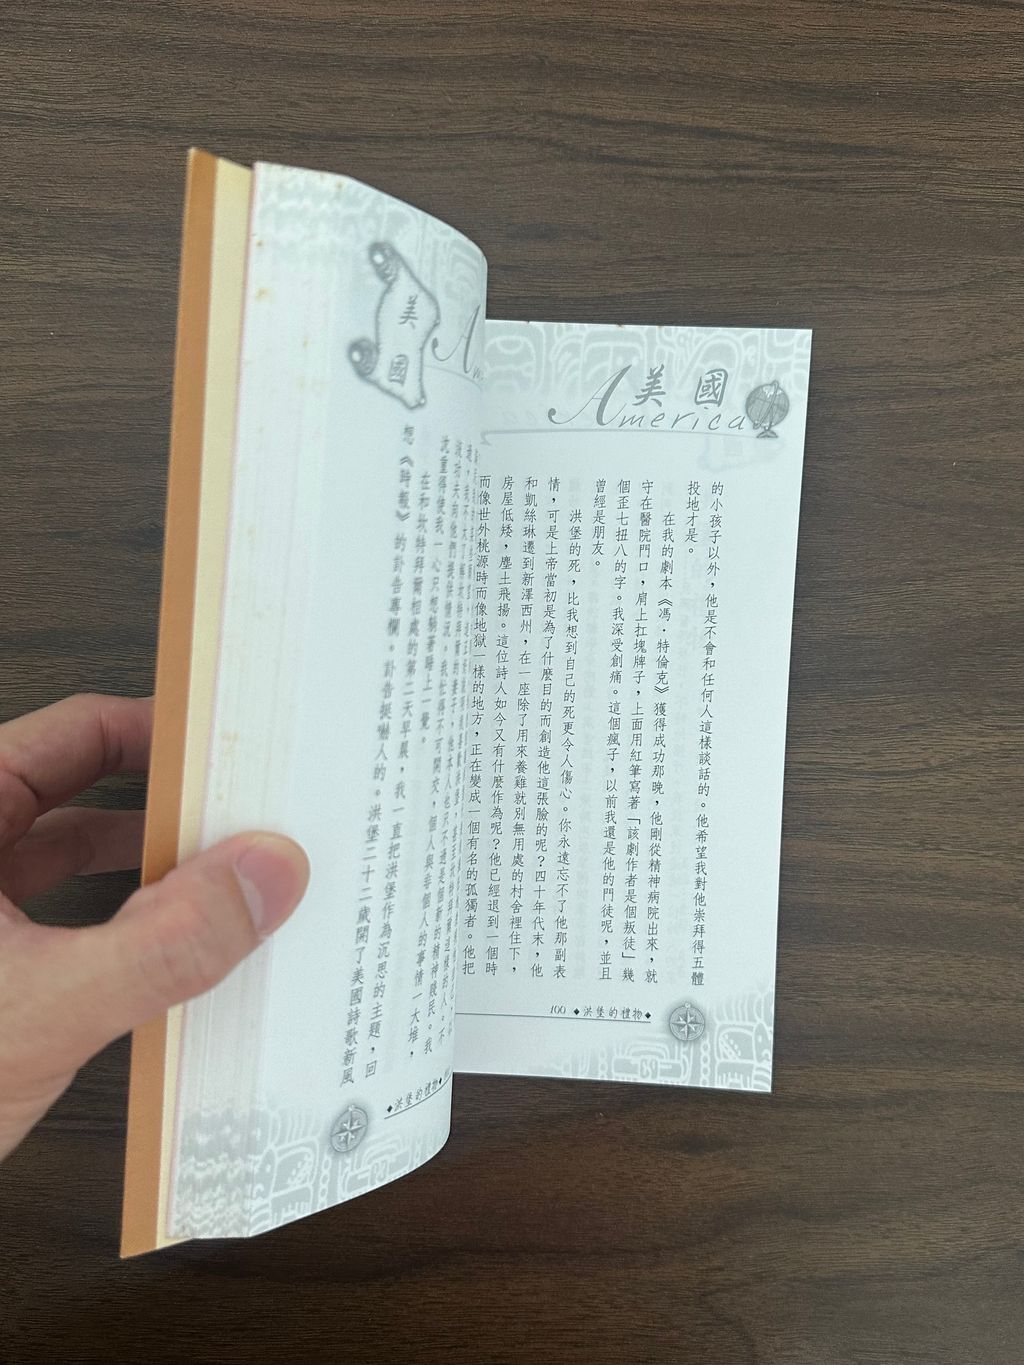 美國
America
的小孩子以外，他是不會和任何人這樣談話的。他希望我對他崇拜得五體
投地才是。
在我的劇本《馮·特倫克》獲得成功那晚，他剛從精神病院出來，就
守在醫院門口，肩上扛塊牌子，上面用紅筆寫著「該劇作者是個叛徒」幾
個歪七扭八的字。我深受創痛。這個瘋子，以前我還是他的門徒呢，並且
曾經是朋友。
洪堡的死，比我想到自己的死更令人傷心。你永遠忘不了他那副表
情，可是上帝當初是為了什麼目的而創造他這張臉的呢？四十年代末，他
和凱絲琳遷到新澤西州，在一座除了用來養雞就別無用處的村舍裡住下，
房屋低矮，塵土飛揚。這位詩人如今又有什麼作為呢？他已經退到一個時
而像世外桃源時而像地獄一樣的地方，正在變成一個有名的孤獨者。他把
100 ◆洪堡的禮物◆
美國
沈重得使我一心只想躺著睡上一覺。
在和坎特拜爾相處的第二天早晨，我一直把洪堡作為沉思的主題，回
想《時報》的訃告專欄。訃告挺嚇人的。洪堡二十二歲開了美國詩歌新風
◆洪堡的禮物◆